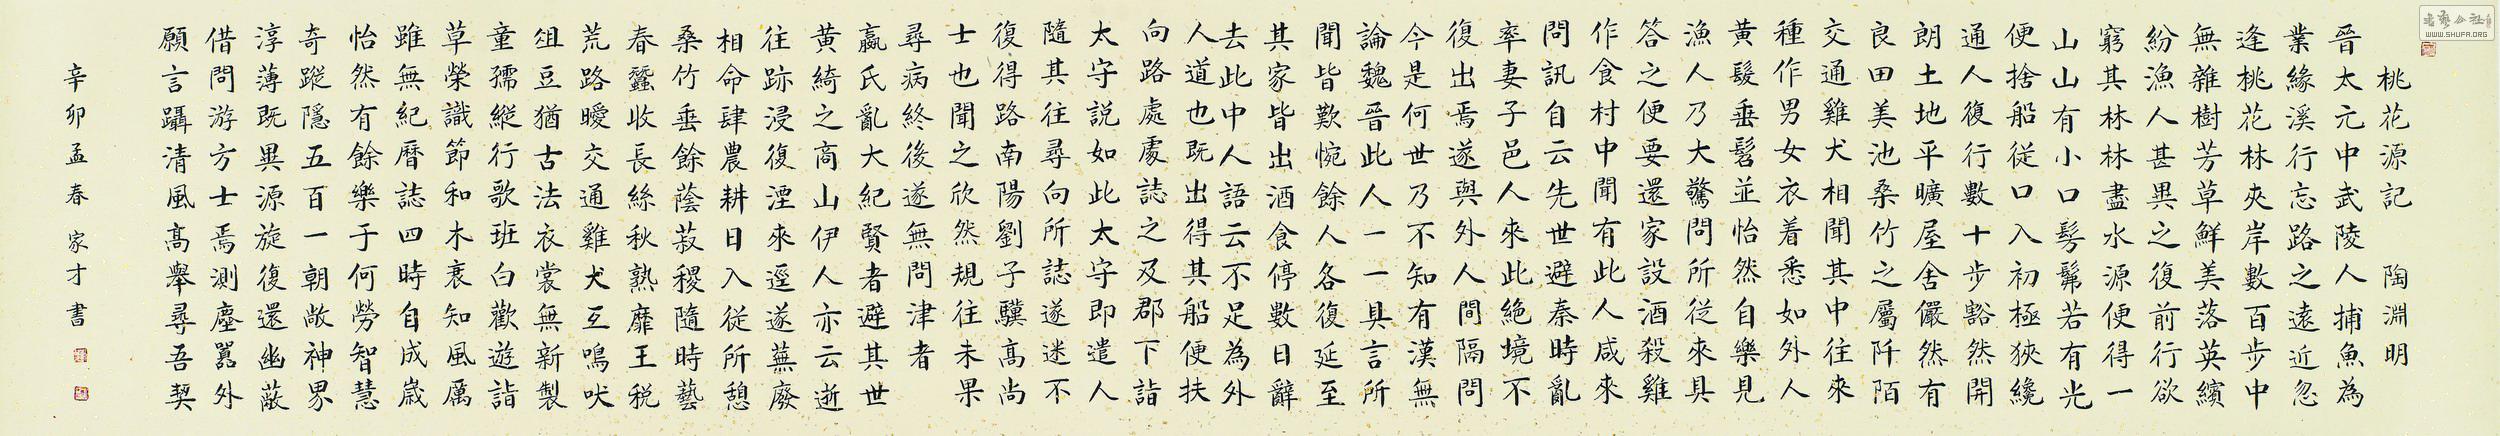 桃花源記 陶淵明
晉太元中武陵人捕魚為
業緣溪行忘路之遠近忽
逢桃花林夾岸數百步中
無雜樹芳草鮮美落英繽
紛漁人甚異之復前行欲
窮其林林盡水源便得一
山山有小口髣髴若有光
便捨船從口入初極狹纔
通人復行數十步豁然開
朗土地平曠屋舍儼然有
良田美池桑竹之屬阡陌
交通雞犬相聞其中往來
種作男女衣着悉如外人
黃髮垂髫並怡然自樂見
漁人乃大驚問所從來具
答之便要還家設酒殺雞
作食村中聞有此人咸來
問訊自云先世避秦時亂
率妻子邑人來此絕境不
復出焉遂與外人間隔問
今是何世乃不知有漢無
論魏晉此人一一具言所
聞皆歎惋餘人各復延至
其家皆出酒食停數日辭
去此中人語云不足為外
人道也既出得其船便扶
向路處處誌之及郡下詣
太守説如此太守即遣人
隨其往尋向所誌遂迷不
復得路南陽劉子驥高尚
士也聞之欣然規往未果
尋病終後遂無問津者
嬴氏亂大紀賢者避其世
黃綺之商山伊人亦云逝
往跡浸復湮來逕遂蕪廢
相命肆農耕日入從所憩
桑竹垂餘蔭菽稷隨時藝
春蠶收長絲秋熟靡王税
荒路曖交通雞犬互鳴吠
俎豆猶古法衣裳無新製
童孺縱行歌班白歡遊詣
草榮識節和木衰知風厲
雖無紀曆誌四時自成歲
怡然有餘樂于何勞智慧
奇蹤隱五百一朝敞神界
淳薄既異源旋復還幽蔽
借問游方士焉測塵囂外
願言躡清風高舉尋吾契
辛卯孟春 家才書
WWW.SHUFA.ORG